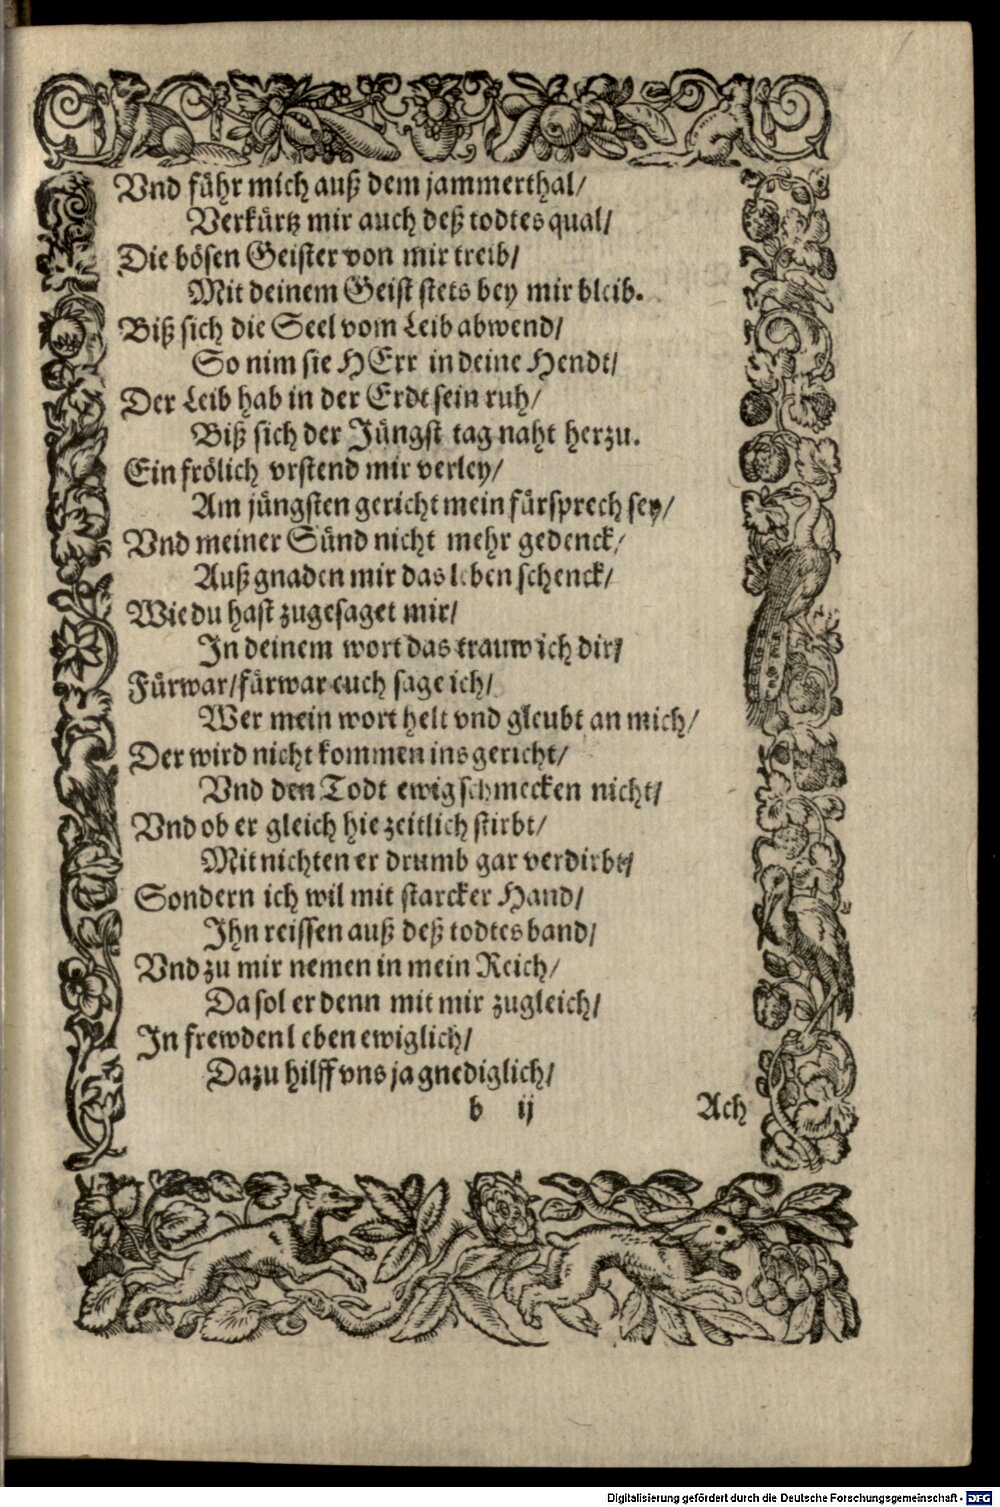 Vnd führ mich auß dem jammerthal/
Verkürtz mir auch deß todtes qual/
Die bösen Geister von mir treib/
Mit deinem Geist stets bey mir bleib.
Biß sich die Seel vom Leib abwend/
So nim sie HErr in deine Hendt/
Der Leib hab in der Erdt sein ruh/
Biß sich der Jüngst tag naht herzu.
Ein frölich vrstend mir verley/
Am jüngsten gericht mein fürsprech sey/
Vnd meiner Sünd nicht mehr gedenck/
Auß gnaden mir das leben schenck/
Wie du hast zugesaget mir/
In deinem wort das trauw ich dir/
Fürwar/fürwar euch sage ich/
Wer mein wort helt vnd gleubt an mich/
Der wird nicht kommen ins gericht/
Vnd den Todt ewig schmecken nicht/
Vnd ob er gleich hie zeitlich stirbt/
Mit nichten er drumb gar verdirbt/
Sondern ich wil mit starcker Hand/
Ihn reissen auß deß todtes band/
Vnd zu mir nemen in mein Reich/
Da sol er denn mit mir zugleich/
In frewden leben ewiglich/
Dazu hilff vns ja gnediglich/
b ij Ach
Digitalisierung gefördert durch die Deutsche Forschungsgemeinschaft - DFG